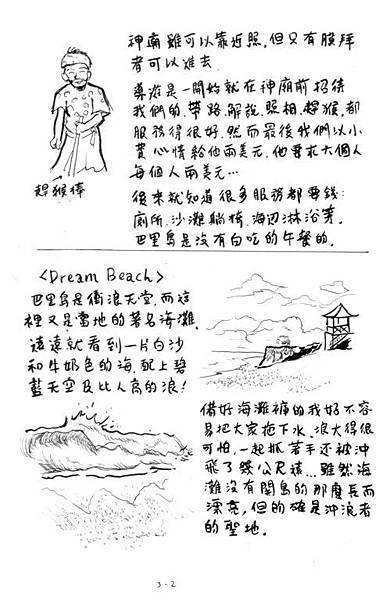 神廟雖可以靠近照,但只有膜拜
者可以進去.
導遊是一開始就在神廟前招待
我們的,帶路.解說.照相.趕猴,都
服務得很好.然而最後我們以小
費心情給他兩美元,他要求大個人
每個人兩美元…
後來就知道很多服務都要錢:
廁所.沙灘躺椅.海邊淋浴等.
巴里島是沒有白吃的午餐的.
趕猴棒
<Dream Beach>
巴里島是衝浪天堂,而這
裡又是當地的著名海灘.
遠遠就看到一片白沙
和牛奶色的海,配上碧
藍天空及比人高的浪!
備好海灘褲的我好不容
易把大家拖下水.浪大得很
可怕,一起抓著手還被沖
飛了幾公尺遠...雖然海
灘沒有關島的那麼長而
漂亮,但的確是沖浪者
的聖地.
3-2